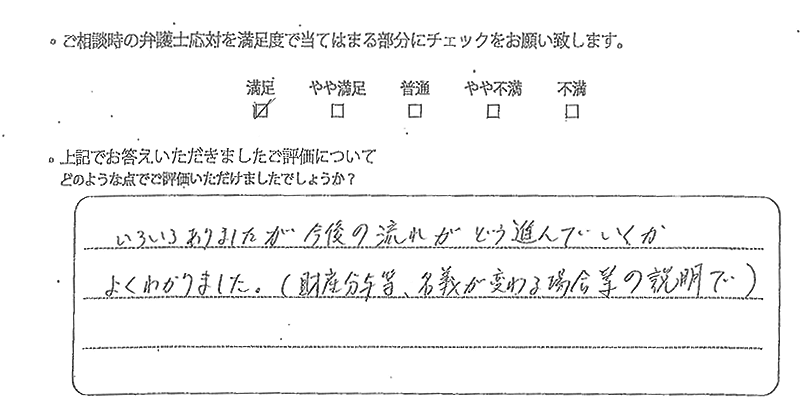 。ご相談時の弁護士応対を満足度で当てはまる部分にチェックをお願い致します。
満足 やや満足 普通 やや不満 不満
☑ □ □ □ □
。上記でお答えいただきましたご評価について
どのような点でご評価いただけましたでしょうか？
いろいろありましたが今後の流れがどう進んでいくか
よくわかりました。(財産分与等、名義が変わる場合等の説明で)